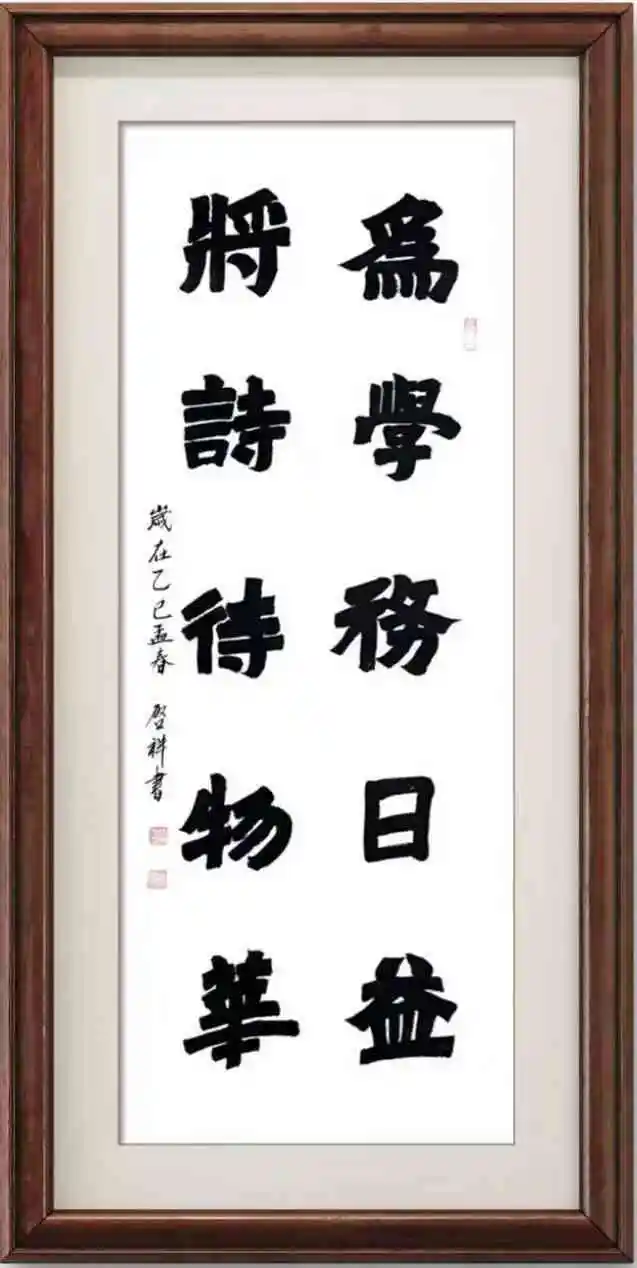 爲學務日益
將詩待物華
歲在乙巳孟春 啓祥書